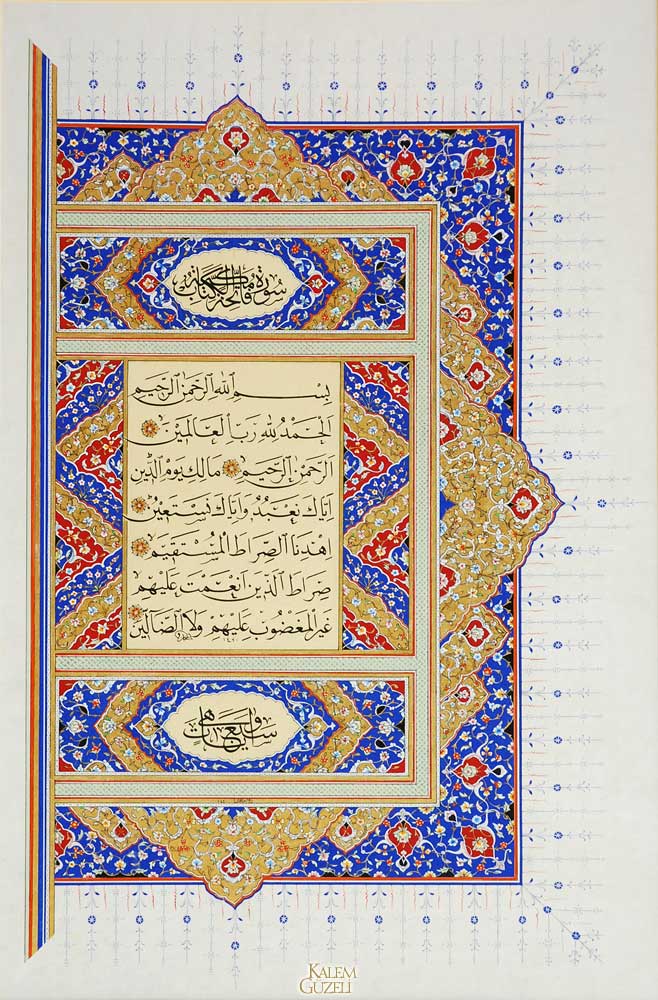 سورة فاتحة الكتاب
بِسْمِ اللّٰهِ الرَّحْمٰنِ الرَّحِيمِ
اَلْحَمْدُ لِلّٰهِ رَبِّ الْعَالَمِينَ
اَلرَّحْمٰنِ الرَّحِيمِ مَالِكِ يَوْمِ الدِّينِ
اِيَّاكَ نَعْبُدُ وَاِيَّاكَ نَسْتَعِينُ
اِهْدِنَا الصِّرَاطَ الْمُسْتَقِيمَ
صِرَاطَ الَّذِينَ اَنْعَمْتَ عَلَيْهِمْ
غَيْرِ الْمَغْضُوبِ عَلَيْهِمْ وَلَا الضَّالِّينَ
وهي سبع آيات
KALEM
GÜZELİ